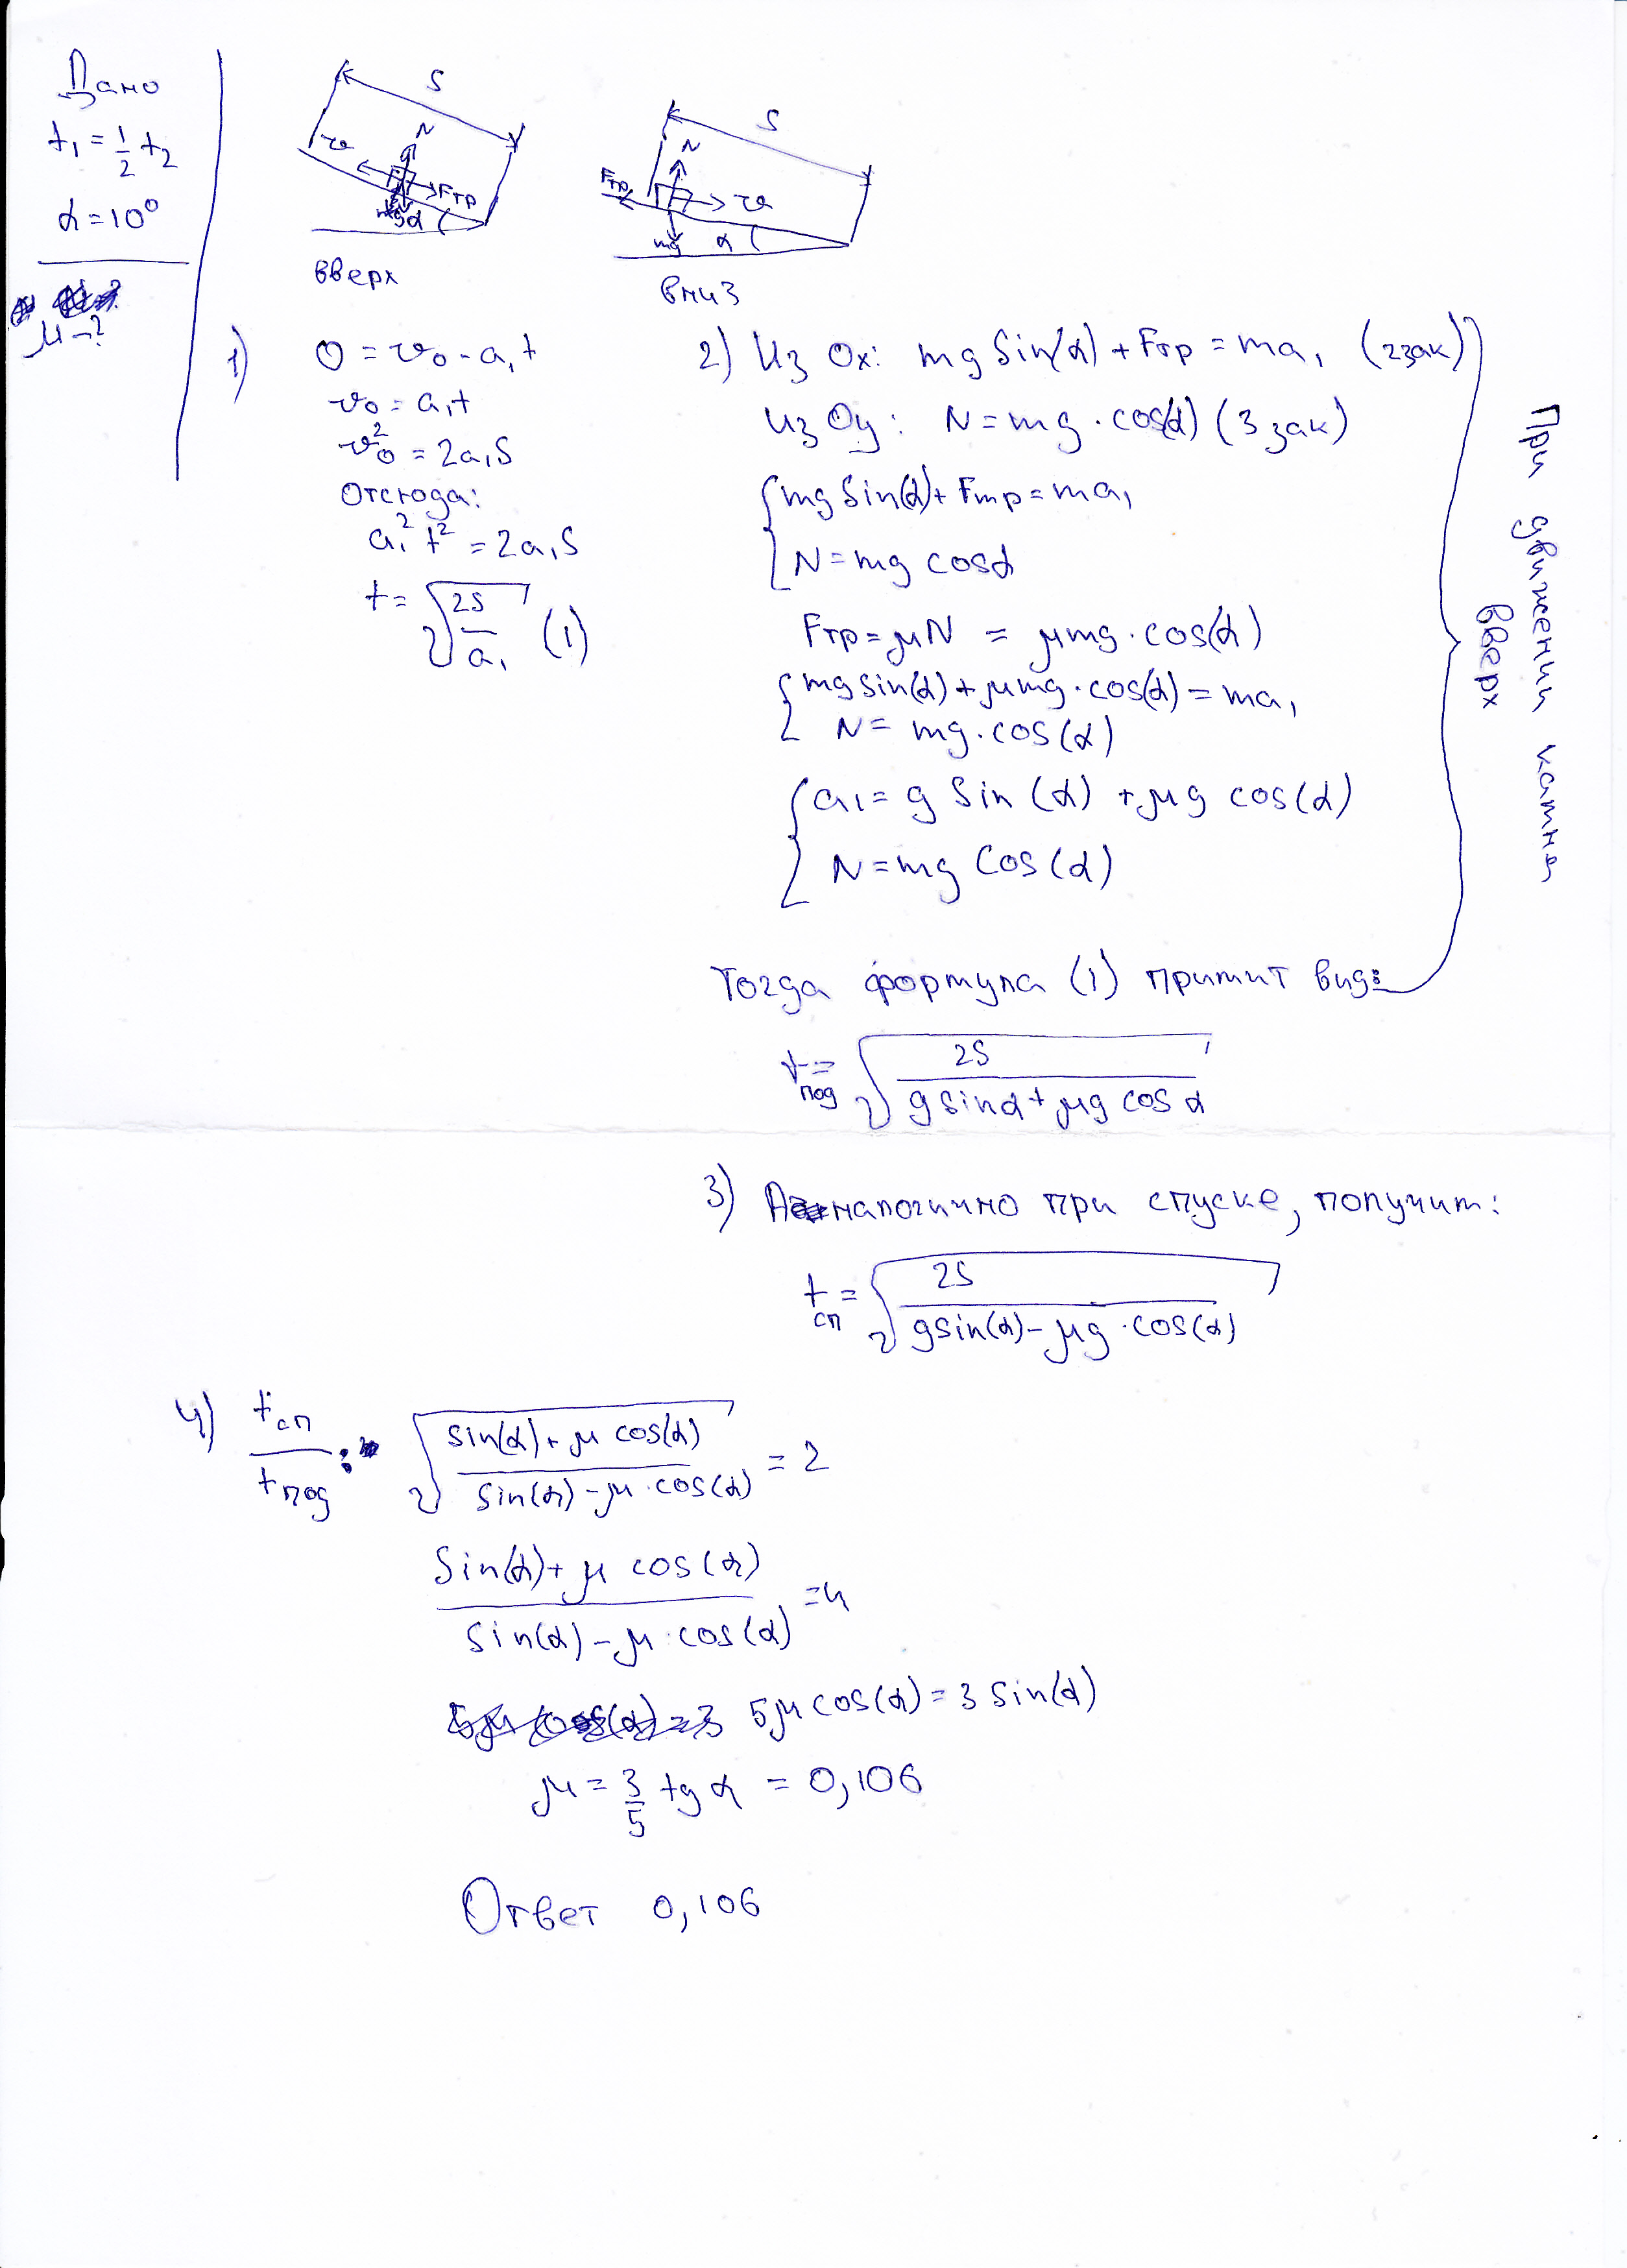 Дано
t₁ = 1/2 t₂
α = 10°
μ - ?
S
N
v
Fтр
mg
α
вверх
S
N
Fтр
v
mg
α
вниз
1) 0 = v₀ - a₁t
v₀ = a₁t
v₀² = 2a₁S
Отсюда:
a₁² t² = 2a₁S
t = √(2S/a₁) (1)
2) Из Ox: mg Sin(α) + Fтр = ma₁ (2 зак)
Из Oy: N = mg · cos(α) (3 зак)
{ mg Sin(α) + Fтр = ma₁
N = mg cosα
Fтр = μN = μmg · cos(α)
{ mg sin(α) + μmg · cos(α) = ma₁
N = mg · cos(α)
{ a₁ = g Sin (α) + μg cos(α)
N = mg Cos (α)
При движении камня
вверх
Тогда формула (1) примит вид:
tпод = √(2S/(g sinα + μg cos α))
3) Аналогично при спуске, получим:
tсп = √(2S/(gsin(α) - μg · cos(α)))
4) tсп/tпод = √((sin(α) + μ cos(α))/(sin(α) - μ · cos(α))) = 2
(Sin(α) + μ cos(α))/(sin(α) - μ · cos(α)) = 4
5μ cos(α) = 3 5μ cos(α) = 3 Sin(α)
μ = 3/5 tg α = 0,106
Ответ 0,106